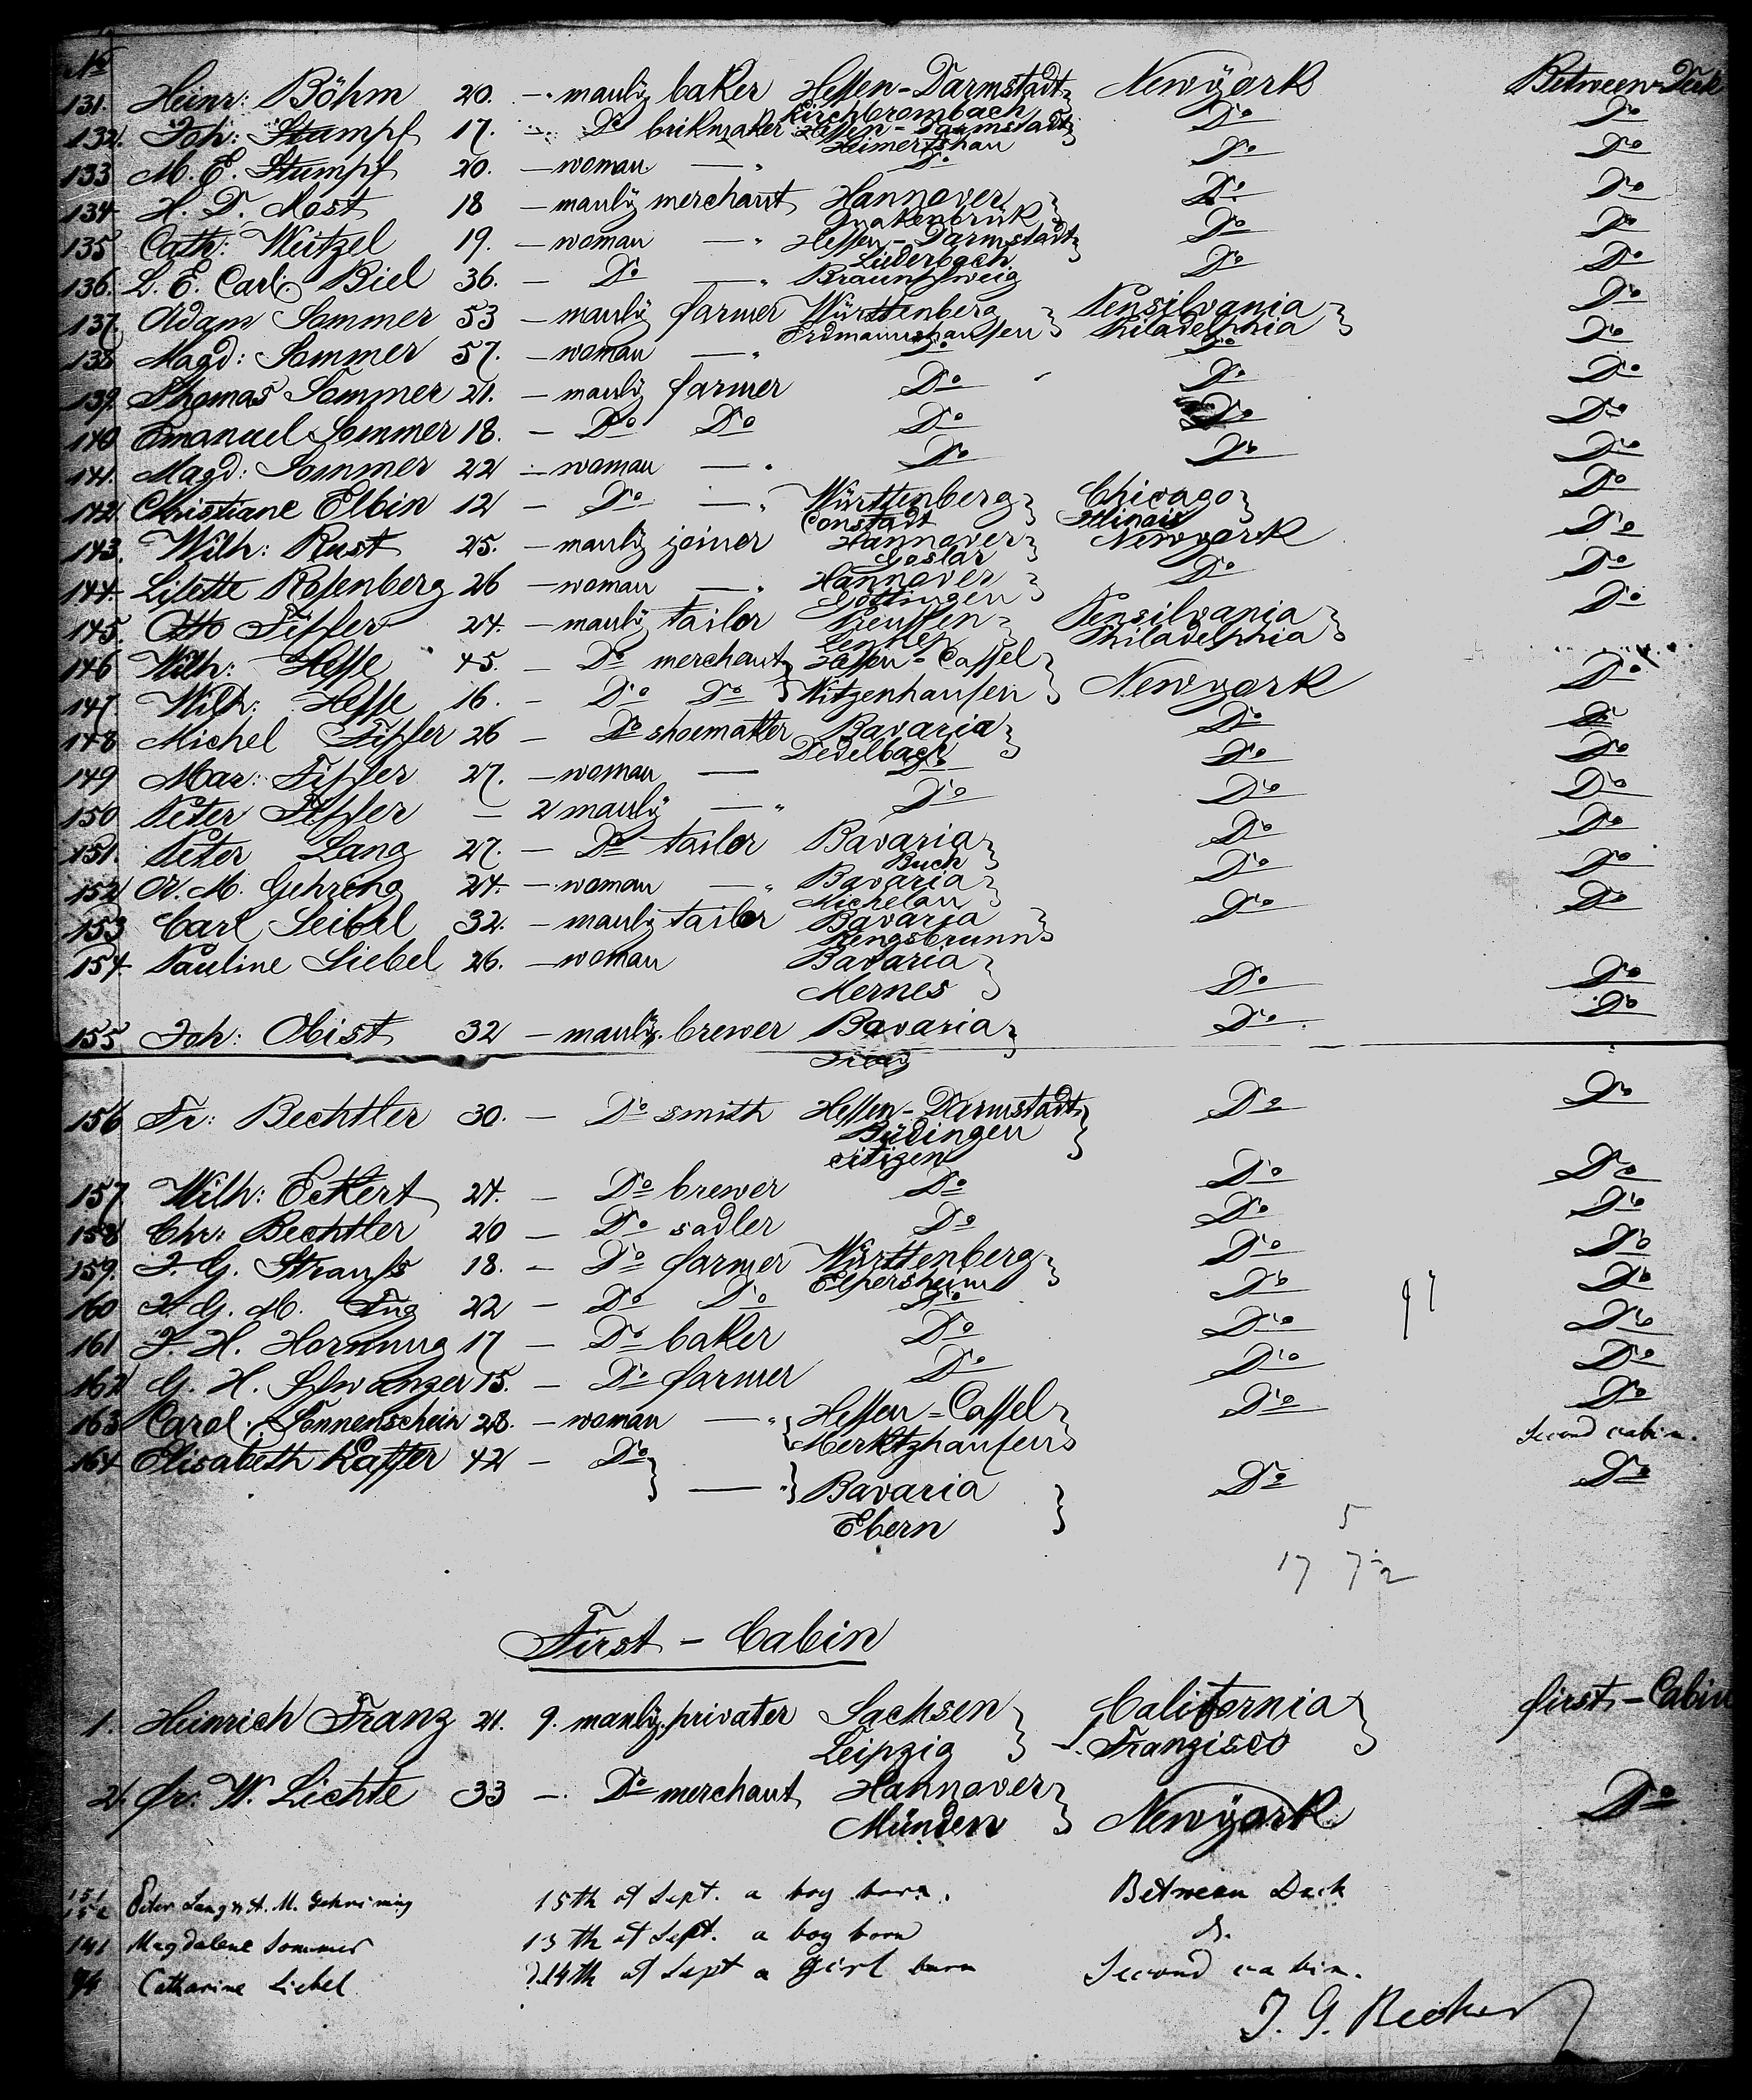 No
131. Heinr: Böhm 20. — manly baker Hessen-Darmstadt Newyork Between-Deck
Kirchbrombach
132. Joh: Stumpf 17. — Do brikmaker Hessen-Darmstadt Do Do
Heimertshau
133 M. E. Stumpf 20. — woman — " Do Do Do
134 H. D. Most 18 — manly merchant Hannover Do Do
Quakenbrük
135 Cath: Weitzel 19. — woman — " Hessen-Darmstadt Do Do
Liederbach
136. L. E. Carl. Biel 36. — Do — " Braunschweig Do Do
137. Adam Sommer 53 — manly farmer Württenberg Pensilvania Do
Erdmannshausen Philadelphia
138 Magd: Sommer 57. — woman — " Do Do Do
139. Thomas Sommer 21. — manly farmer Do Do Do
140 Emanuel Sommer 18. — Do Do Do Do Do
141. Magd: Sommer 22 — woman — " Do Do Do
142 Christiane Elbin 12 — Do — " Württenberg Chicago Do
Constadt Illinois
143. Wilh: Rust 25. — manly joiner Hannover Newyork Do
Goslar
144. Lisette Rosenberg 26 — woman — " Hannover Do Do
Göttingen
145. Otto 24. — manly tailor Preussen Pensilvania Do
Lennep Philadelphia
146 Wilh: Hesse 45. — Do merchant Hessen-Cassel
147. Wilh: Hesse 16. — Do Do Witzenhausen Newyork Do
148 Michel 26 — Do shoemakter Bavaria Do Do
Dedelbach
149 Mar: 27. — woman — Do Do Do
150 Peter — 2 manly — " Do Do Do
151. Peter Lang 27. — Do tailor Bavaria Do Do
Buch
152 A. M. Gehring 24. — woman — " Bavaria Do Do
Michelau
153 Carl Seibel 32. — manly tailor Bavaria Do Do
Rengsbrunn
154 Pauline Siebel 26. — woman Bavaria
Mernes Do Do
155 Joh: Obist 32 — manly. brewer Bavaria Do Do
156 Fr: Bechtler 30. — Do smith Hessen-Darmstadt Do Do
Büdingen
citizen
157 Wilh: Eckert 24. — Do brewer Do Do Do
158 Chr: Bechtler 20 — Do sadler Do Do Do
159. J. G. Strauss 18. — Do farmer Württenberg Do Do
Elpersheim
160 J. G. M. 22 — Do Do Do Do Do
161 J. H. Hornung 17 — Do baker Do Do Do
162 G. H. Schwanzer 15. — Do farmer Do Do Do
163 Carol. Sonnenschein 28. — woman — " Hessen-Cassel Do Do
Merktzhausen Second cabin.
164 Elisabeth Kaffer 42 — Do — " Bavaria Do Do
Ebern
5
17 72
First - Cabin
1. Heinrich Franz 21. 9. manly. privater Sachsen California first-Cabin
Leipzig Franzisco
2. fr. W. Lichte 33 — Do merchant Hannover Newyork Do
Münden
151
152 Peter Lang u. A. M. Gehriming 15th of Sept. a boy born. Between Deck
141 Magdalene Sommer 13th of Sept. a boy born d.
94 Catharine Siebel 14th of Sept a girl born Second cabin.
J. G. Becker